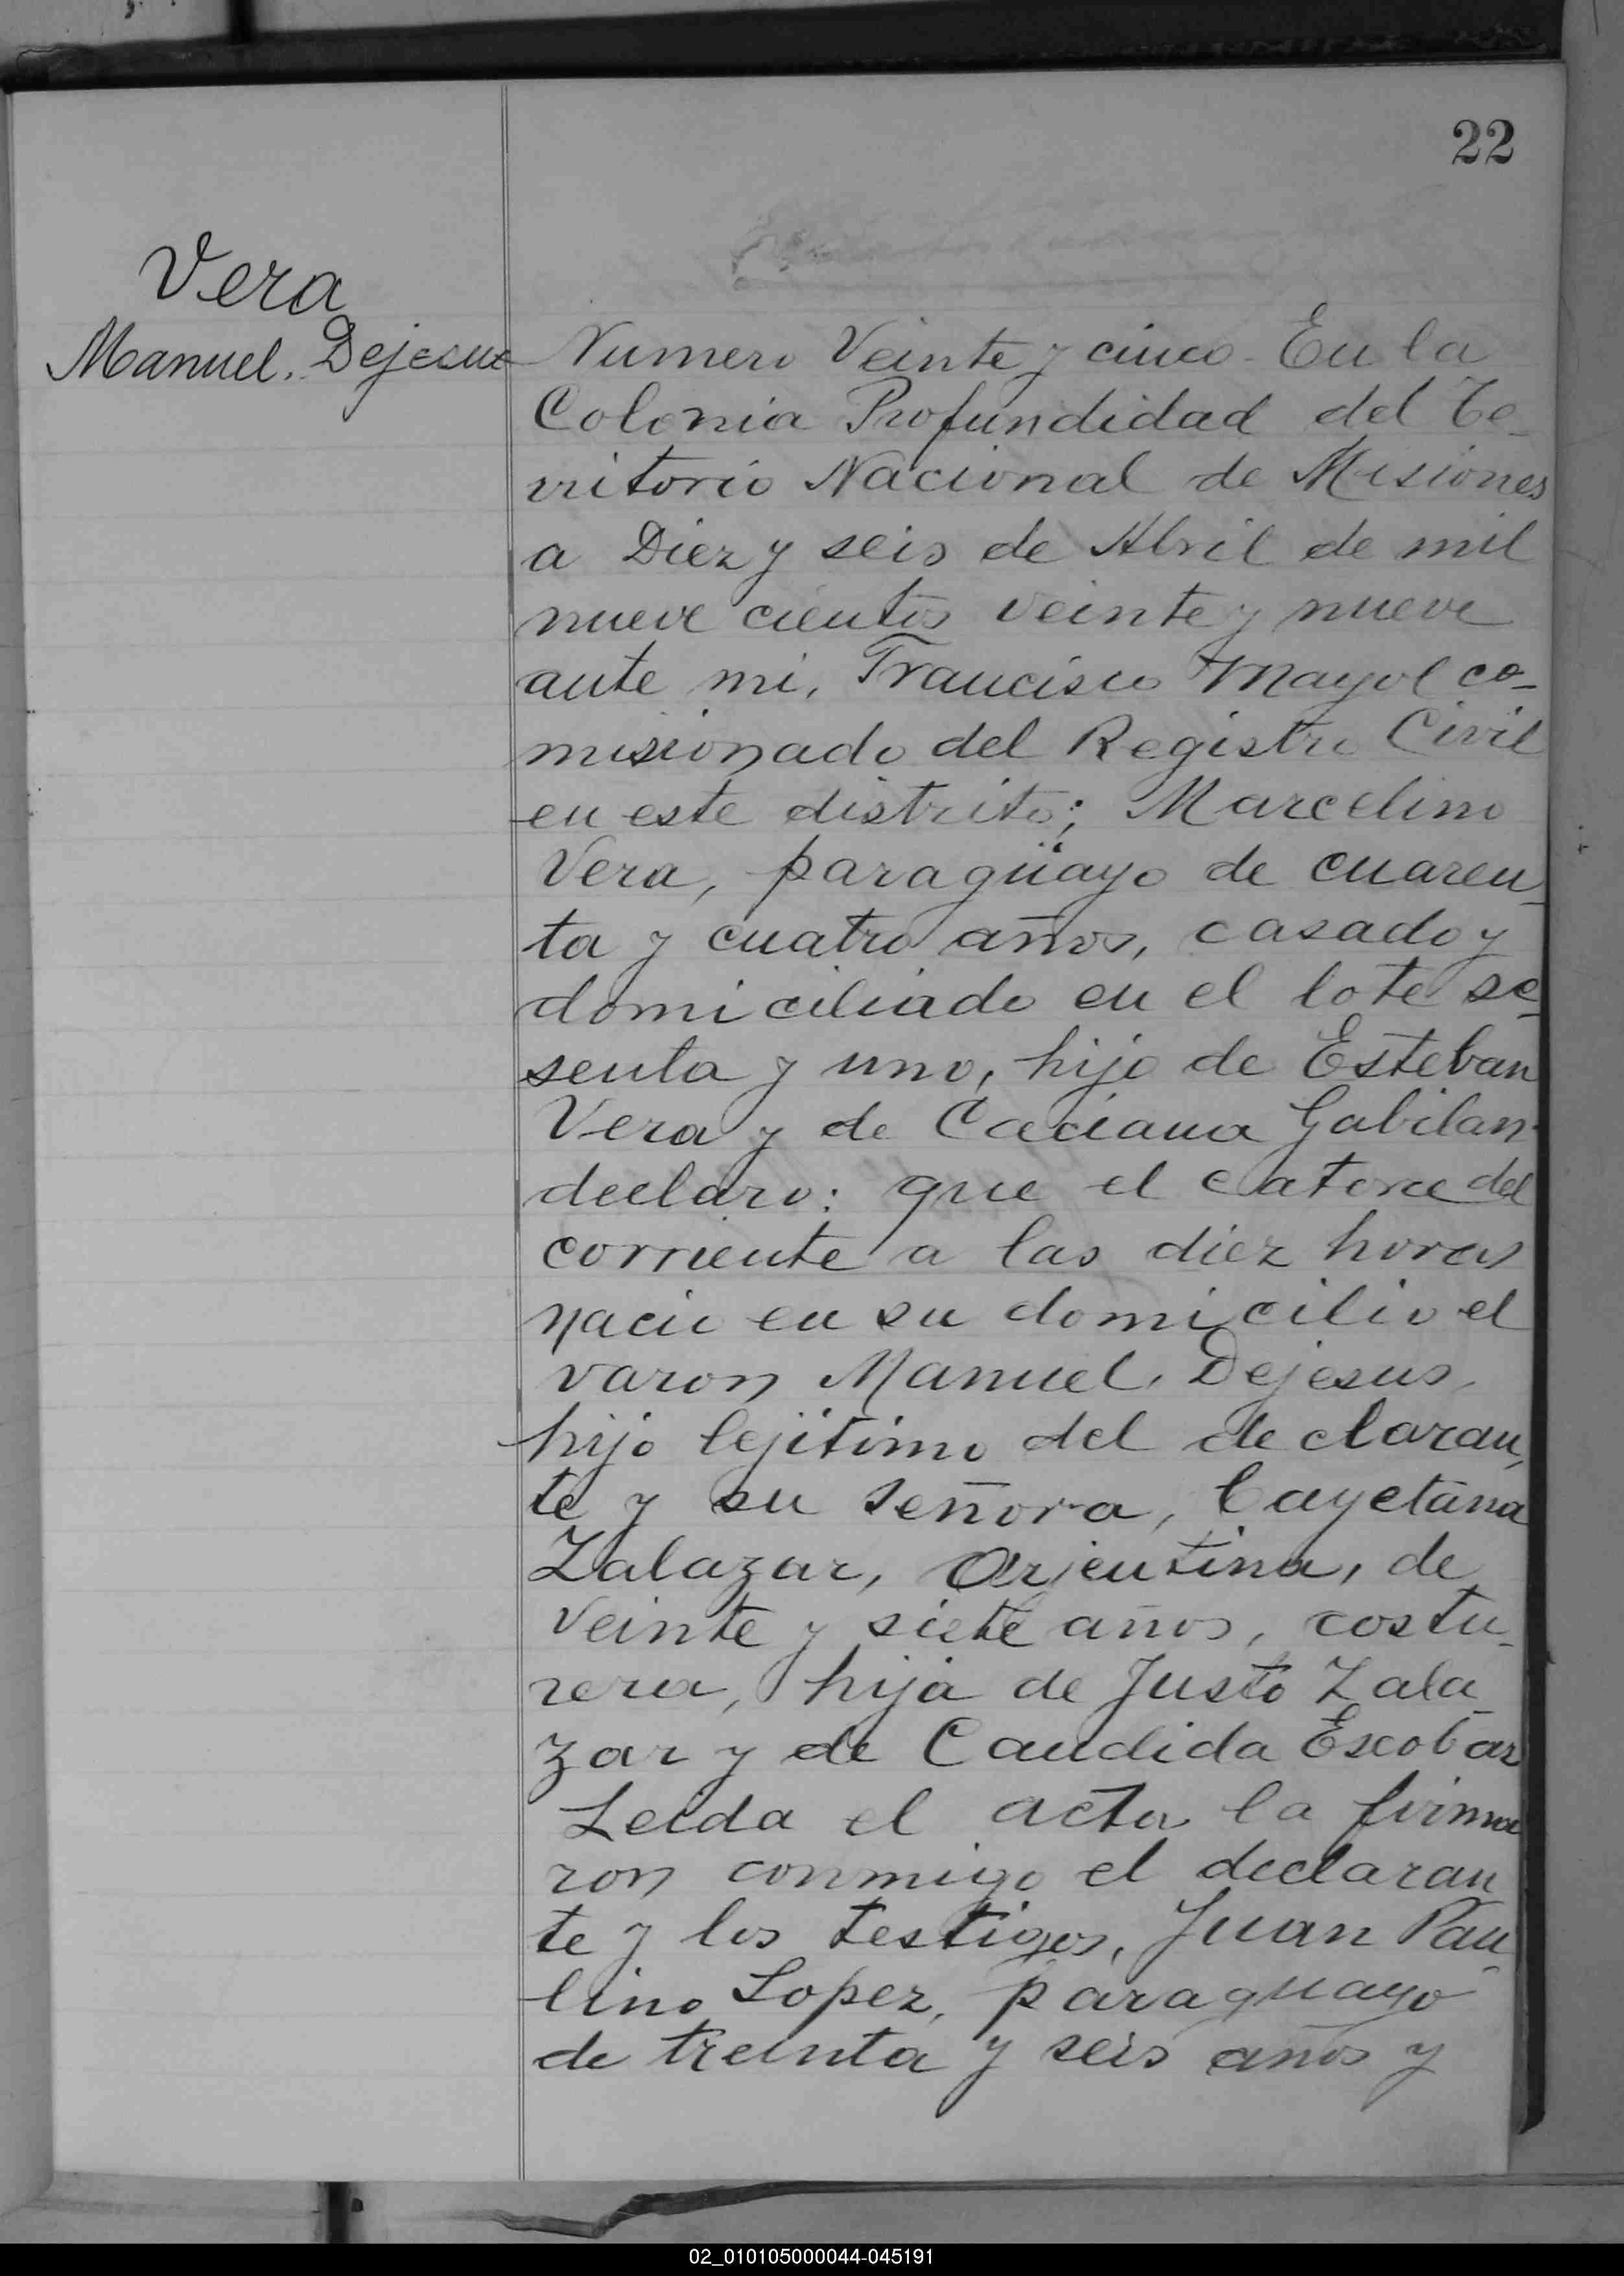 22
Vera
Manuel. Dejesus
Numero Veinte y cinco. En la
Colonia Profundidad del Te-
rritorio Nacional de Misiones
a Diez y seis de Abril de mil
nueve cientos veinte y nueve
ante mi, Francisco Mayol co-
misionado del Registro Civil
en este distrito; Marcelino
Vera, paragüayo de cuaren-
ta y cuatro años, casado y
domiciliado en el lote se-
senta y uno, hijo de Esteban
Vera y de Caciana Gabilan
declaro: que el catorce del
corriente a las diez horas
nacio en su domicilio el
varon Manuel, Dejesus,
hijo lejitimo del declaran-
te y su señora, Cayetana
Zalazar, Arjentina, de
veinte y siete años, costu-
rera, hija de Justo Zala-
zar y de Candida Escobar
Leida el acta la firma
ron conmigo el declaran
te y los testigos, Juan Pau-
lino Lopez, paraguayo
de treinta y seis años y
02_010105000044-045191